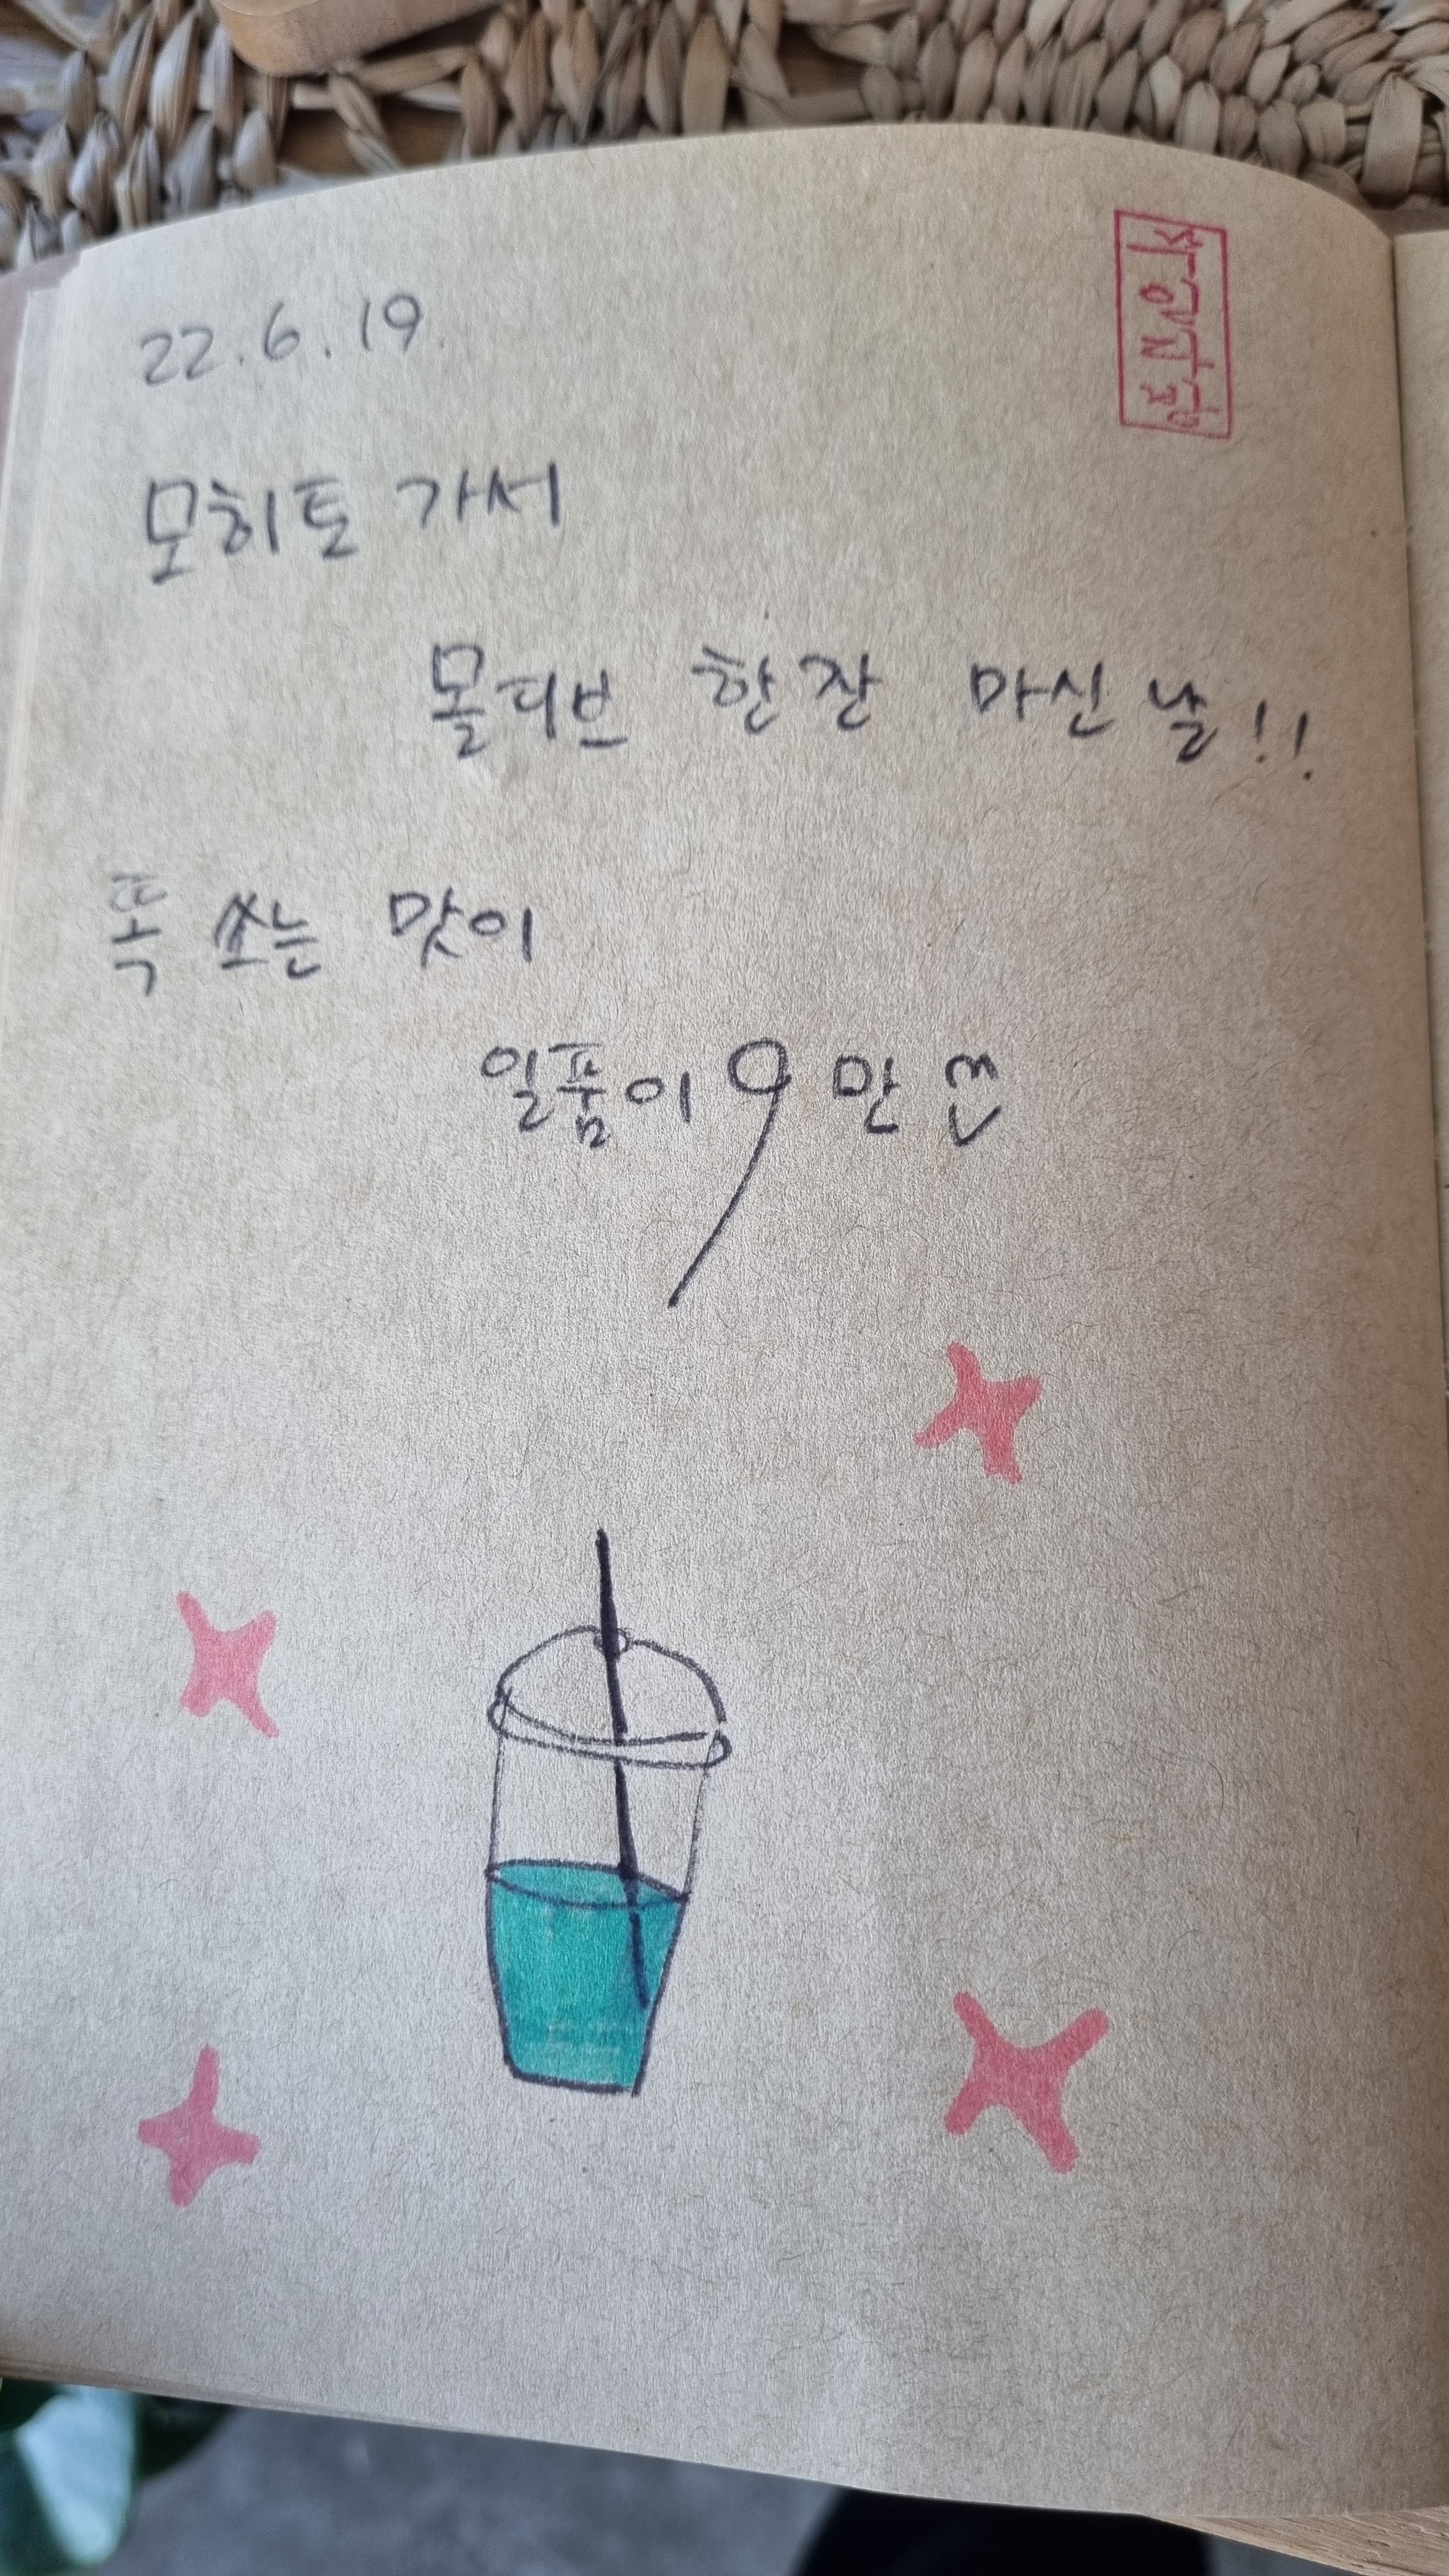 22.6.19.
모히토 가서
몰디브 한잔 마신 날!!
톡 쏘는 맛이
일품이9만